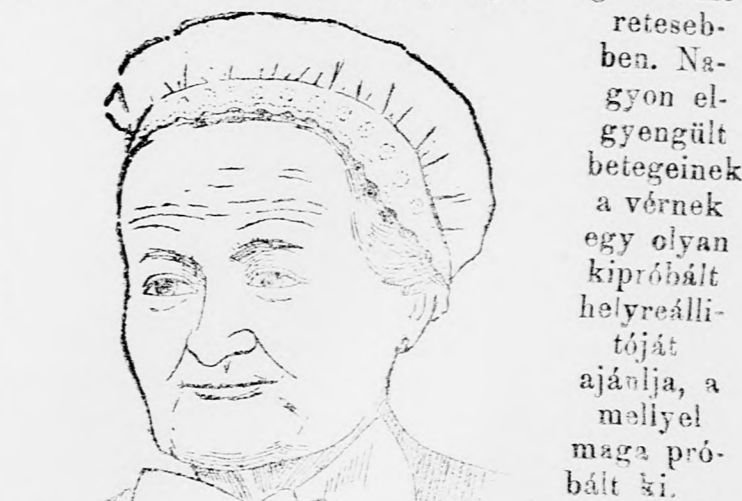 reteseb-
ben. Na-
gyon el-
gyengült
betegeinek
a vérnek
egy olyan
kipróbált
helyreálli-
tóját
ajánlja, a
mellyel
maga pró-
bált ki,